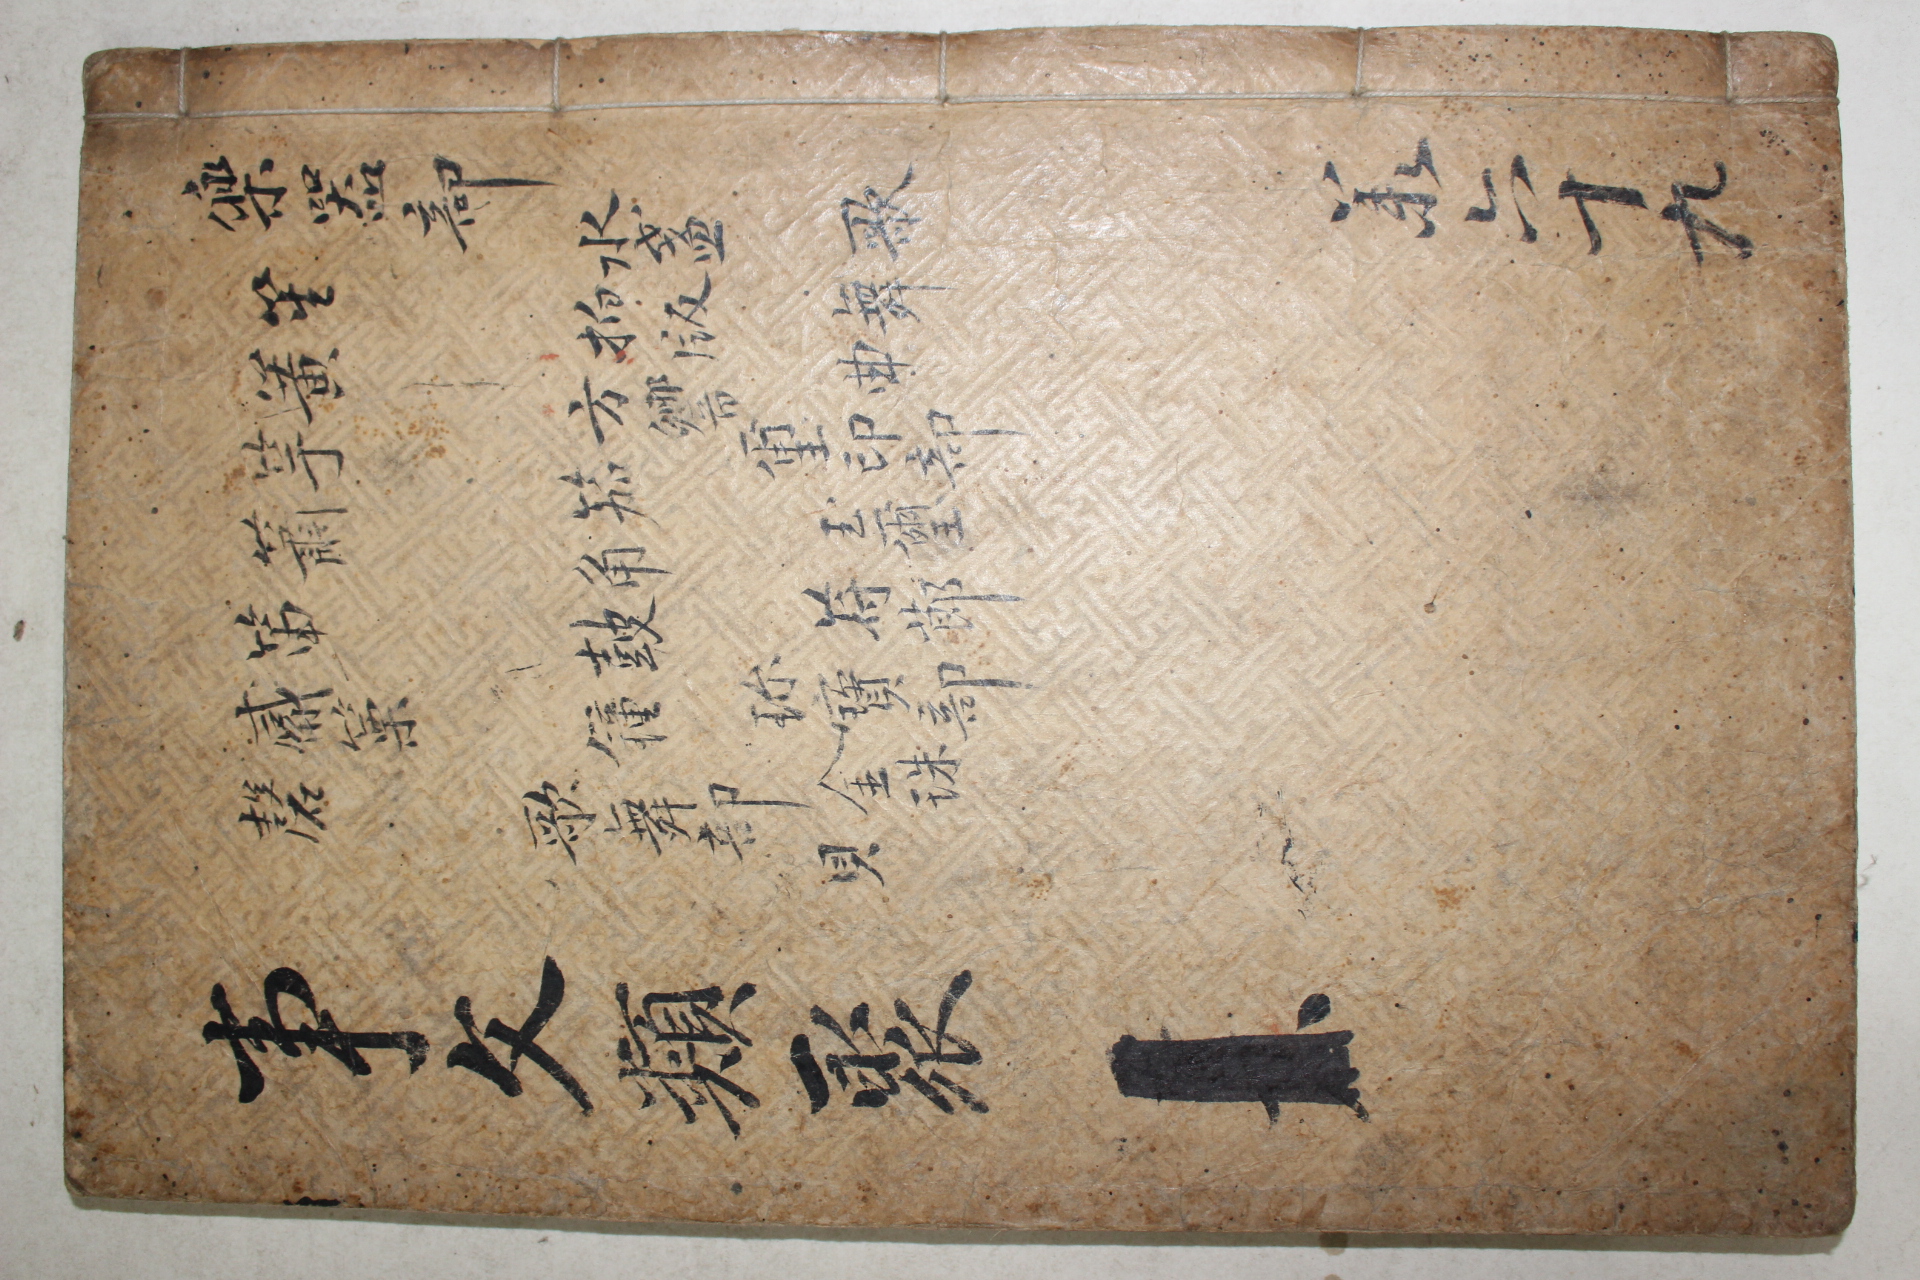 樂器部
笙
簧
竽
簫
笛
觱篥
磬
水盞
拍版
方響
笳
角
皷
鐘
歌舞部
歌
舞
曲
壐印部
玉璽
符節
珎寶部
金珠
貝
六十九
事文類聚